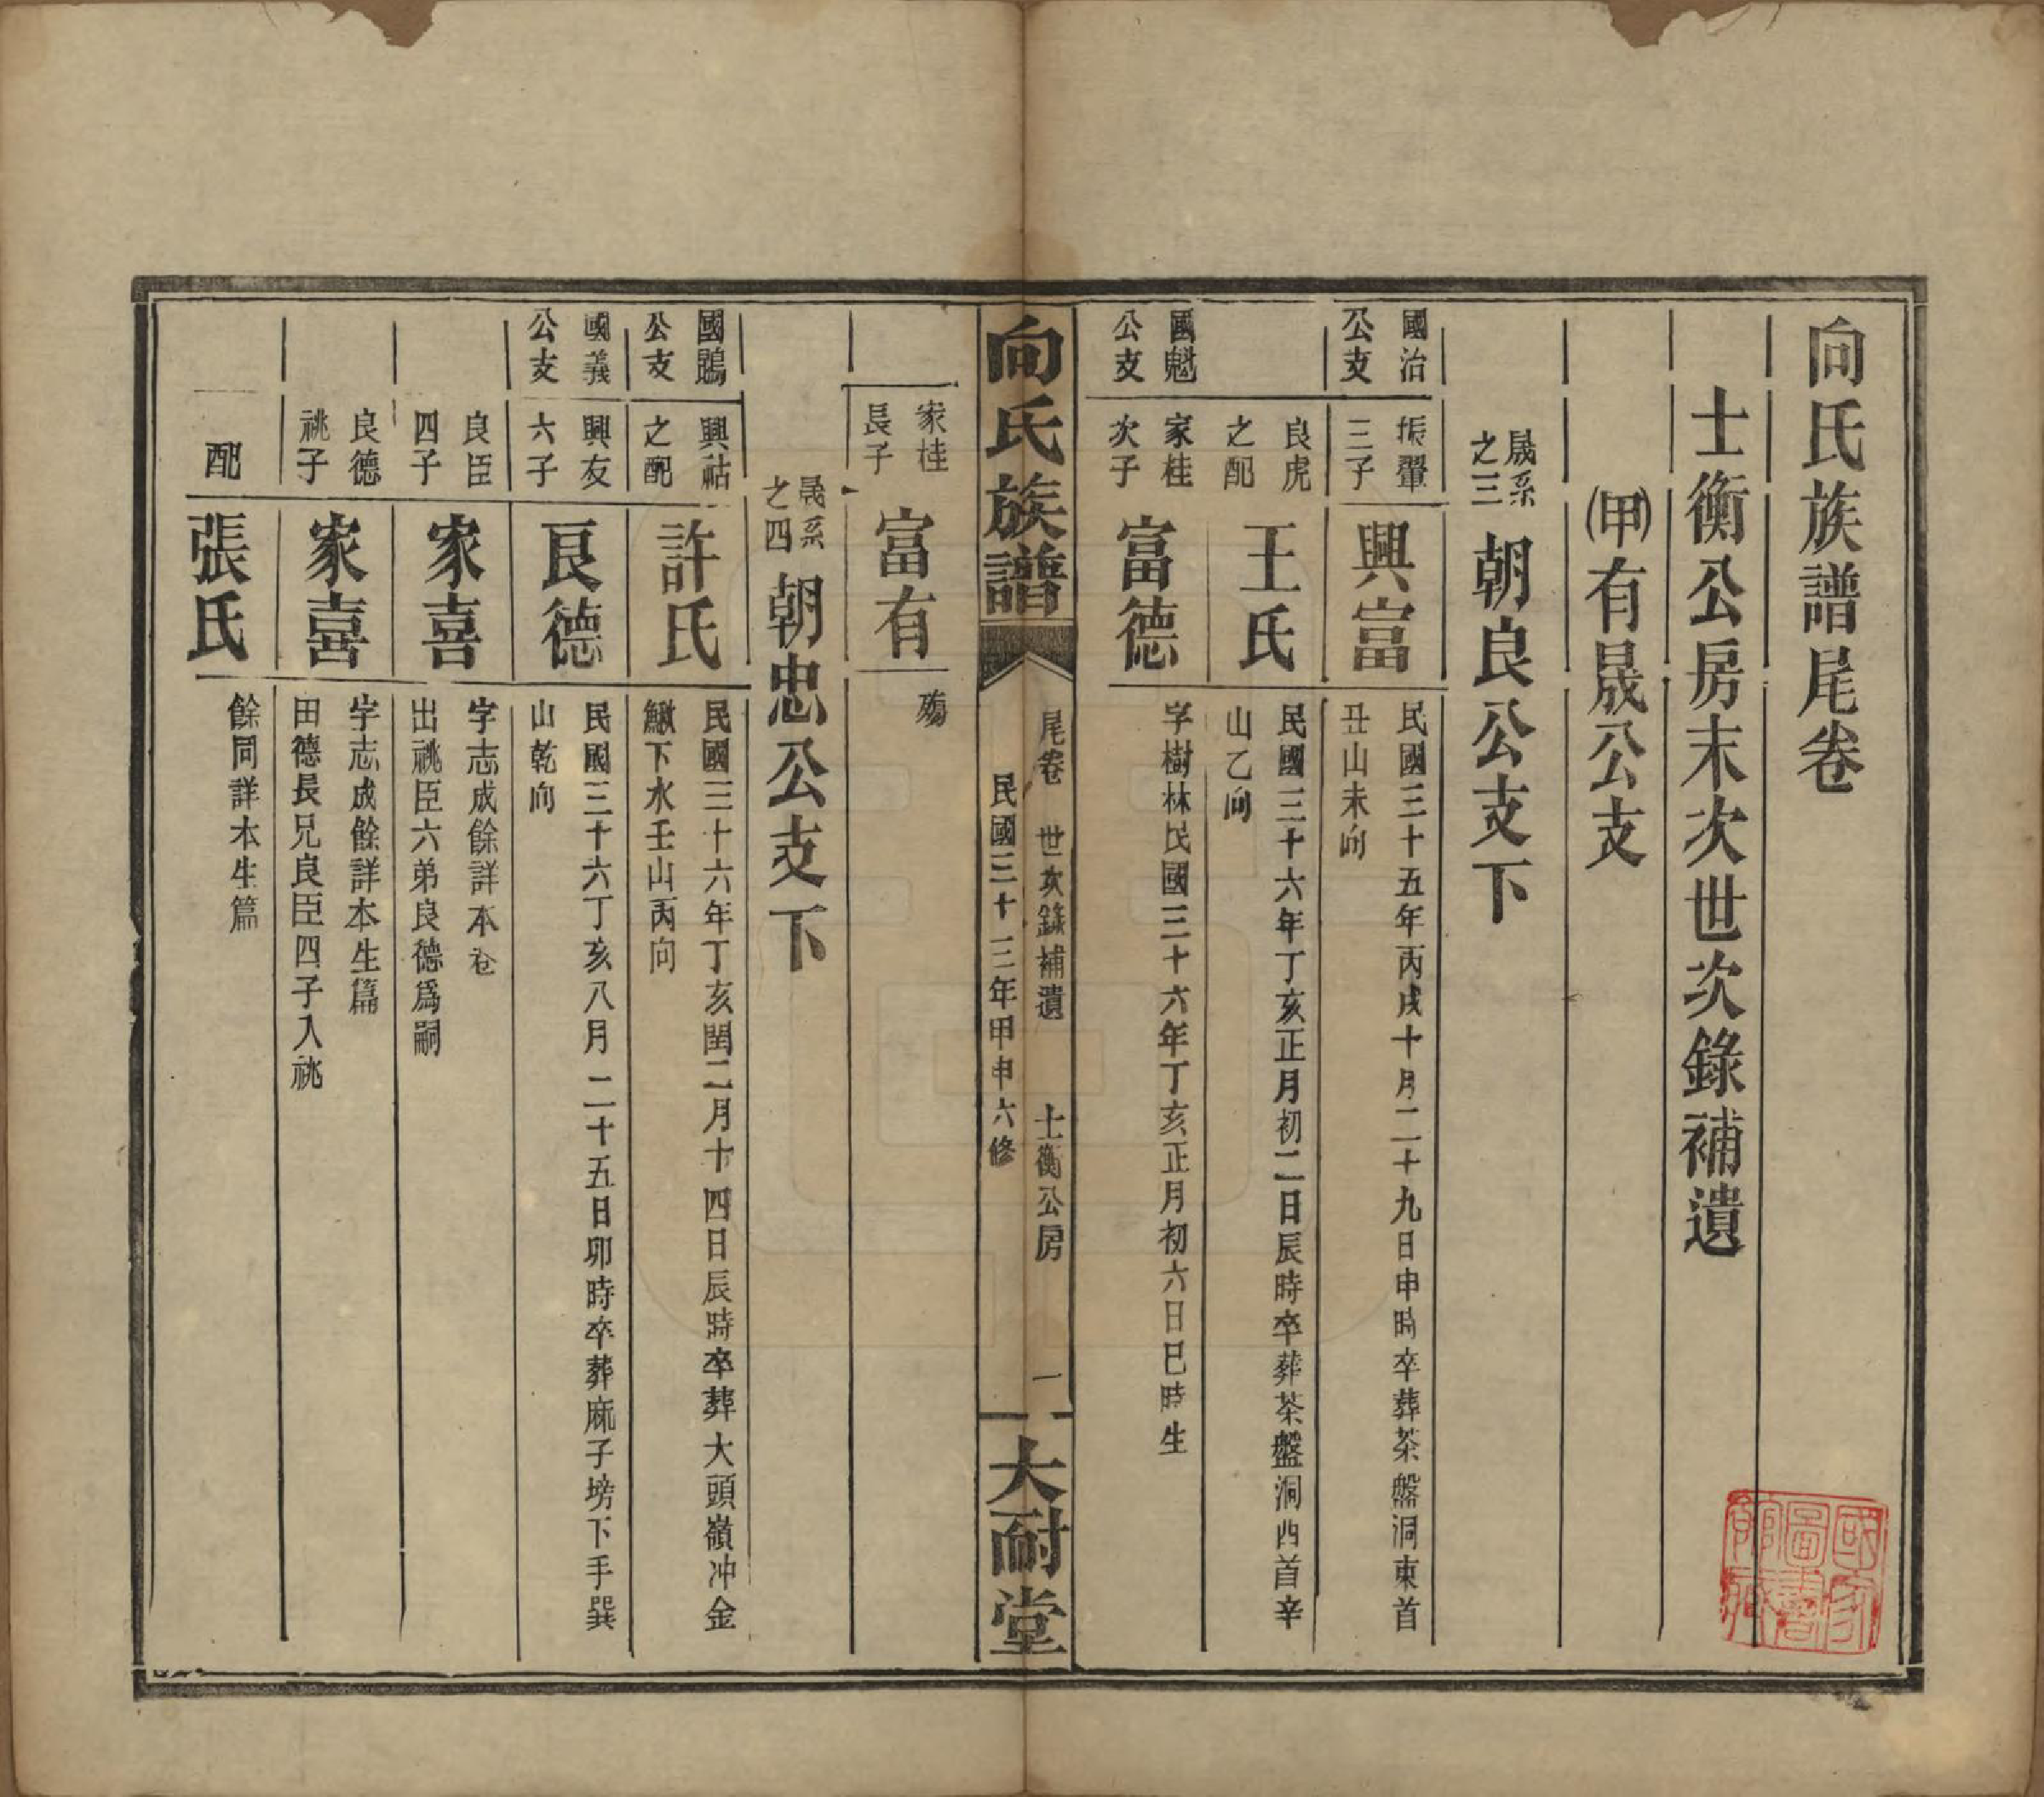 向氏族譜尾卷
士衡公房末次世次錄補遺
㈙有晟公支
晟系之三
朝良公支下
國治公支
振翬三子
興富
民國三十五年丙戌十月二十九日申時卒葬茶盤洞東首
丑山未向
良虎之配
王氏
民國三十六年丁亥正月初二日辰時卒葬茶盤洞西首辛
山乙向
國魁公支
家桂次子
富德
字樹林民國三十六年丁亥正月初六日巳時生
向氏族譜
尾卷 世次錄補遺 士衡公房 一
民國三十三年甲申六修
大耐堂
家桂長子
富有
殤
晟系之四
朝忠公支下
國鵾公支
興祜之配
許氏
民國三十六年丁亥閏二月十四日辰時卒葬大頭嶺冲金
鰍下水壬山丙向
國義公支
興友六子
良德
民國三十六丁亥八月二十五日卯時卒葬麻子塝下手巽
山乾向
良臣四子
家喜
字志成餘詳本卷
出祧臣六弟良德為嗣
良德祧子
家喜
字志成餘詳本生篇
由德長兄良臣四子入祧
配
張氏
餘同詳本生篇
國家圖書館藏